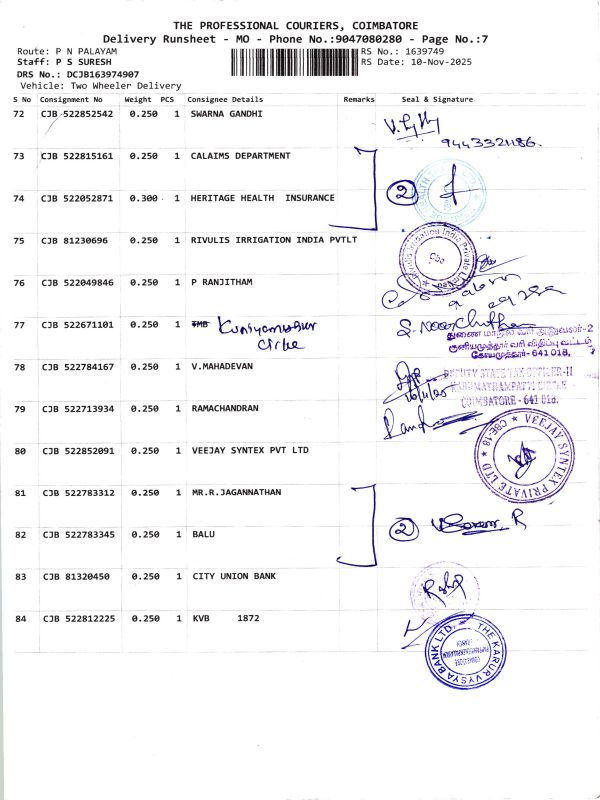 THE PROFESSIONAL COURIERS, COIMBATORE
Delivery Runsheet - MO - Phone No.:9047080280 - Page No.:7
Route: P N PALAYAM
Staff: P S SURESH
DRS No.: DCJB163974907
Vehicle: Two Wheeler Delivery
RS No.: 1639749
RS Date: 10-Nov-2025
S No Consignment No Weight PCS Consignee Details Remarks Seal & Signature
72 CJB 522852542 0.250 1 SWARNA GANDHI
9443321186.
73 CJB 522815161 0.250 1 CALAIMS DEPARTMENT
2
74 CJB 522052871 0.300 1 HERITAGE HEALTH INSURANCE
75 CJB 81230696 0.250 1 RIVULIS IRRIGATION INDIA PVTLT
Rivulis Irrigation India Private Limited
Cbe
76 CJB 522049846 0.250 1 P RANJITHAM
77 CJB 522671101 0.250 1 TMB Kuniyamuthur
Circle
துணை மாநில வரி அலுவலர்-2
குனியமுத்தூர் வரி விதிப்பு வட்டம்
கோயமுத்தூர்- 641 018.
78 CJB 522784167 0.250 1 V.MAHADEVAN
DEPUTY STATE TAX OFFICER-II
COIMBATORE - 641 018.
79 CJB 522713934 0.250 1 RAMACHANDRAN
80 CJB 522852091 0.250 1 VEEJAY SYNTEX PVT LTD
VEEJAY SYNTEX PRIVATE LTD
CBE-18
81 CJB 522783312 0.250 1 MR.R.JAGANNATHAN
2
82 CJB 522783345 0.250 1 BALU
83 CJB 81320450 0.250 1 CITY UNION BANK
84 CJB 522812225 0.250 1 KVB 1872
THE KARUR VYSYA BANK LTD.